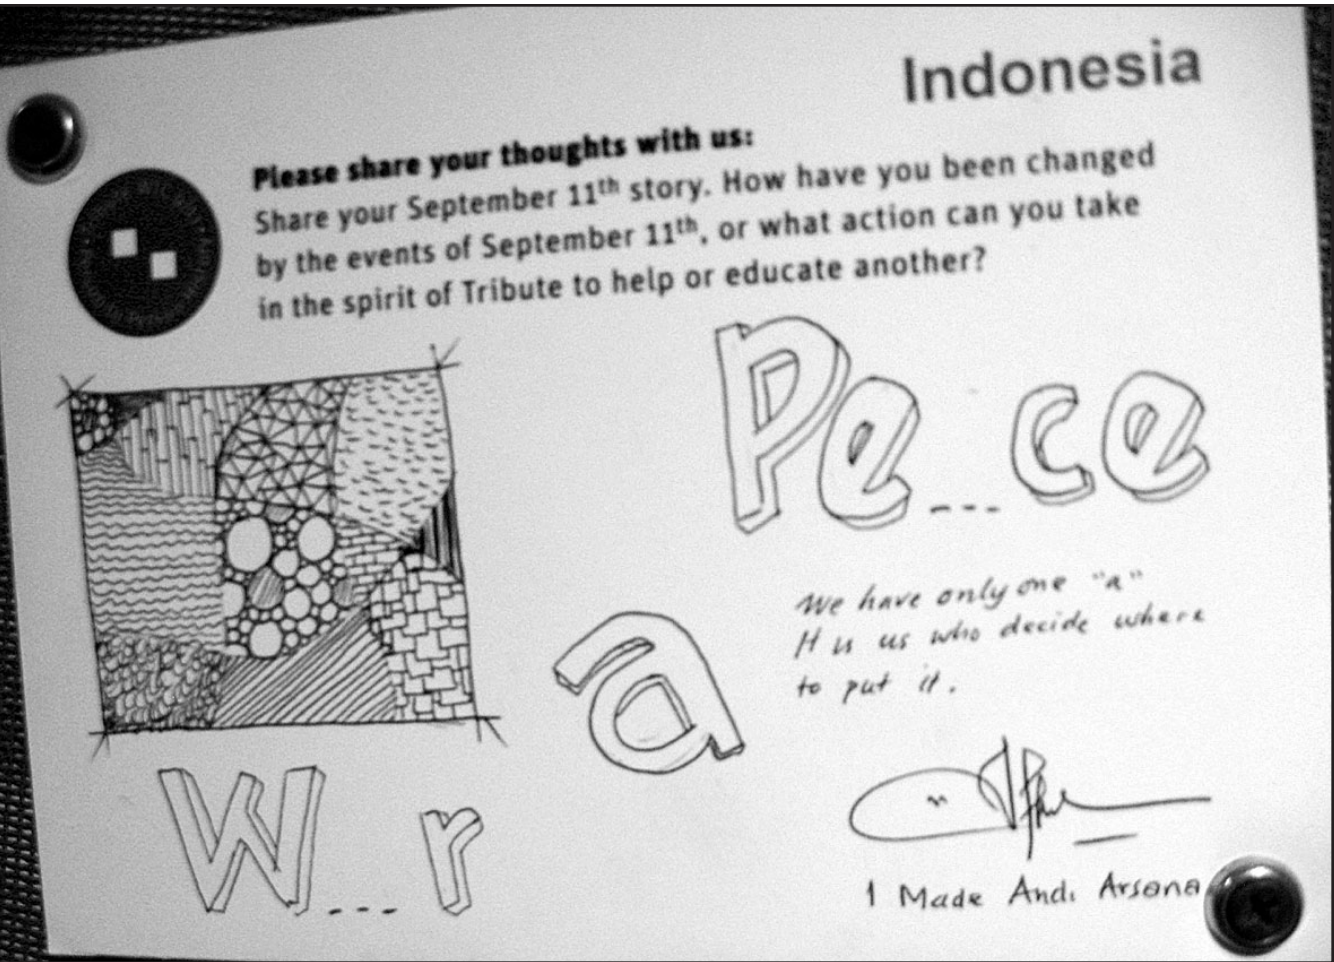 Indonesia
Please share your thoughts with us:
Share your September 11th story. How have you been changed
by the events of September 11th, or what action can you take
in the spirit of Tribute to help or educate another?
Pe _ _ _ ce
We have only one "a"
It is us who decide where
to put it.
a
W _ _ _ r
I Made Andi Arsana